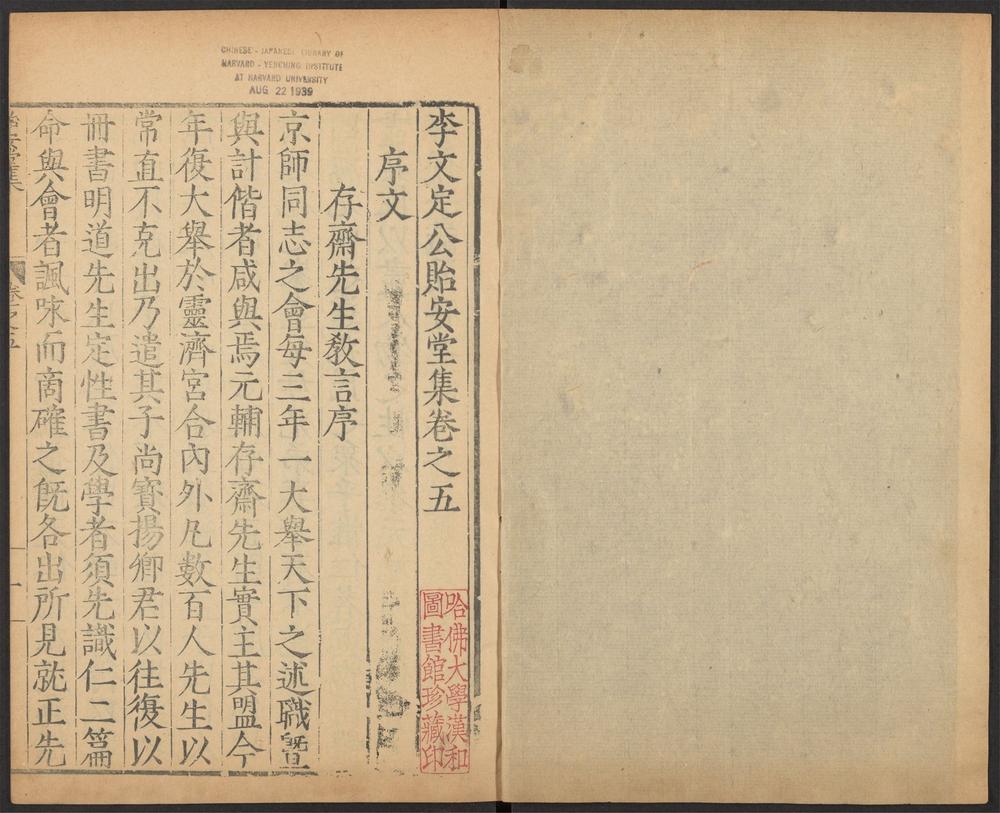 CHINESE - JAPANESE LIBRARY OF
HARVARD - YENCHING INSTITUTE
AT HARVARD UNIVERSITY
AUG 22 1939
李文定公貽安堂集卷之五
哈佛大學漢和
圖書館珍藏印
序文
存齋先生教言序
京師同志之會每三年一大舉天下之述職暨
與計偕者咸與焉元輔存齋先生實主其盟今
年復大舉於靈濟宮合內外凡數百人先生以
常直不克出乃遣其子尚寶揚卿君以往復以
冊書明道先生定性書及學者須先識仁二篇
命與會者諷咏而商確之旣各出所見就正先
卷之五
一